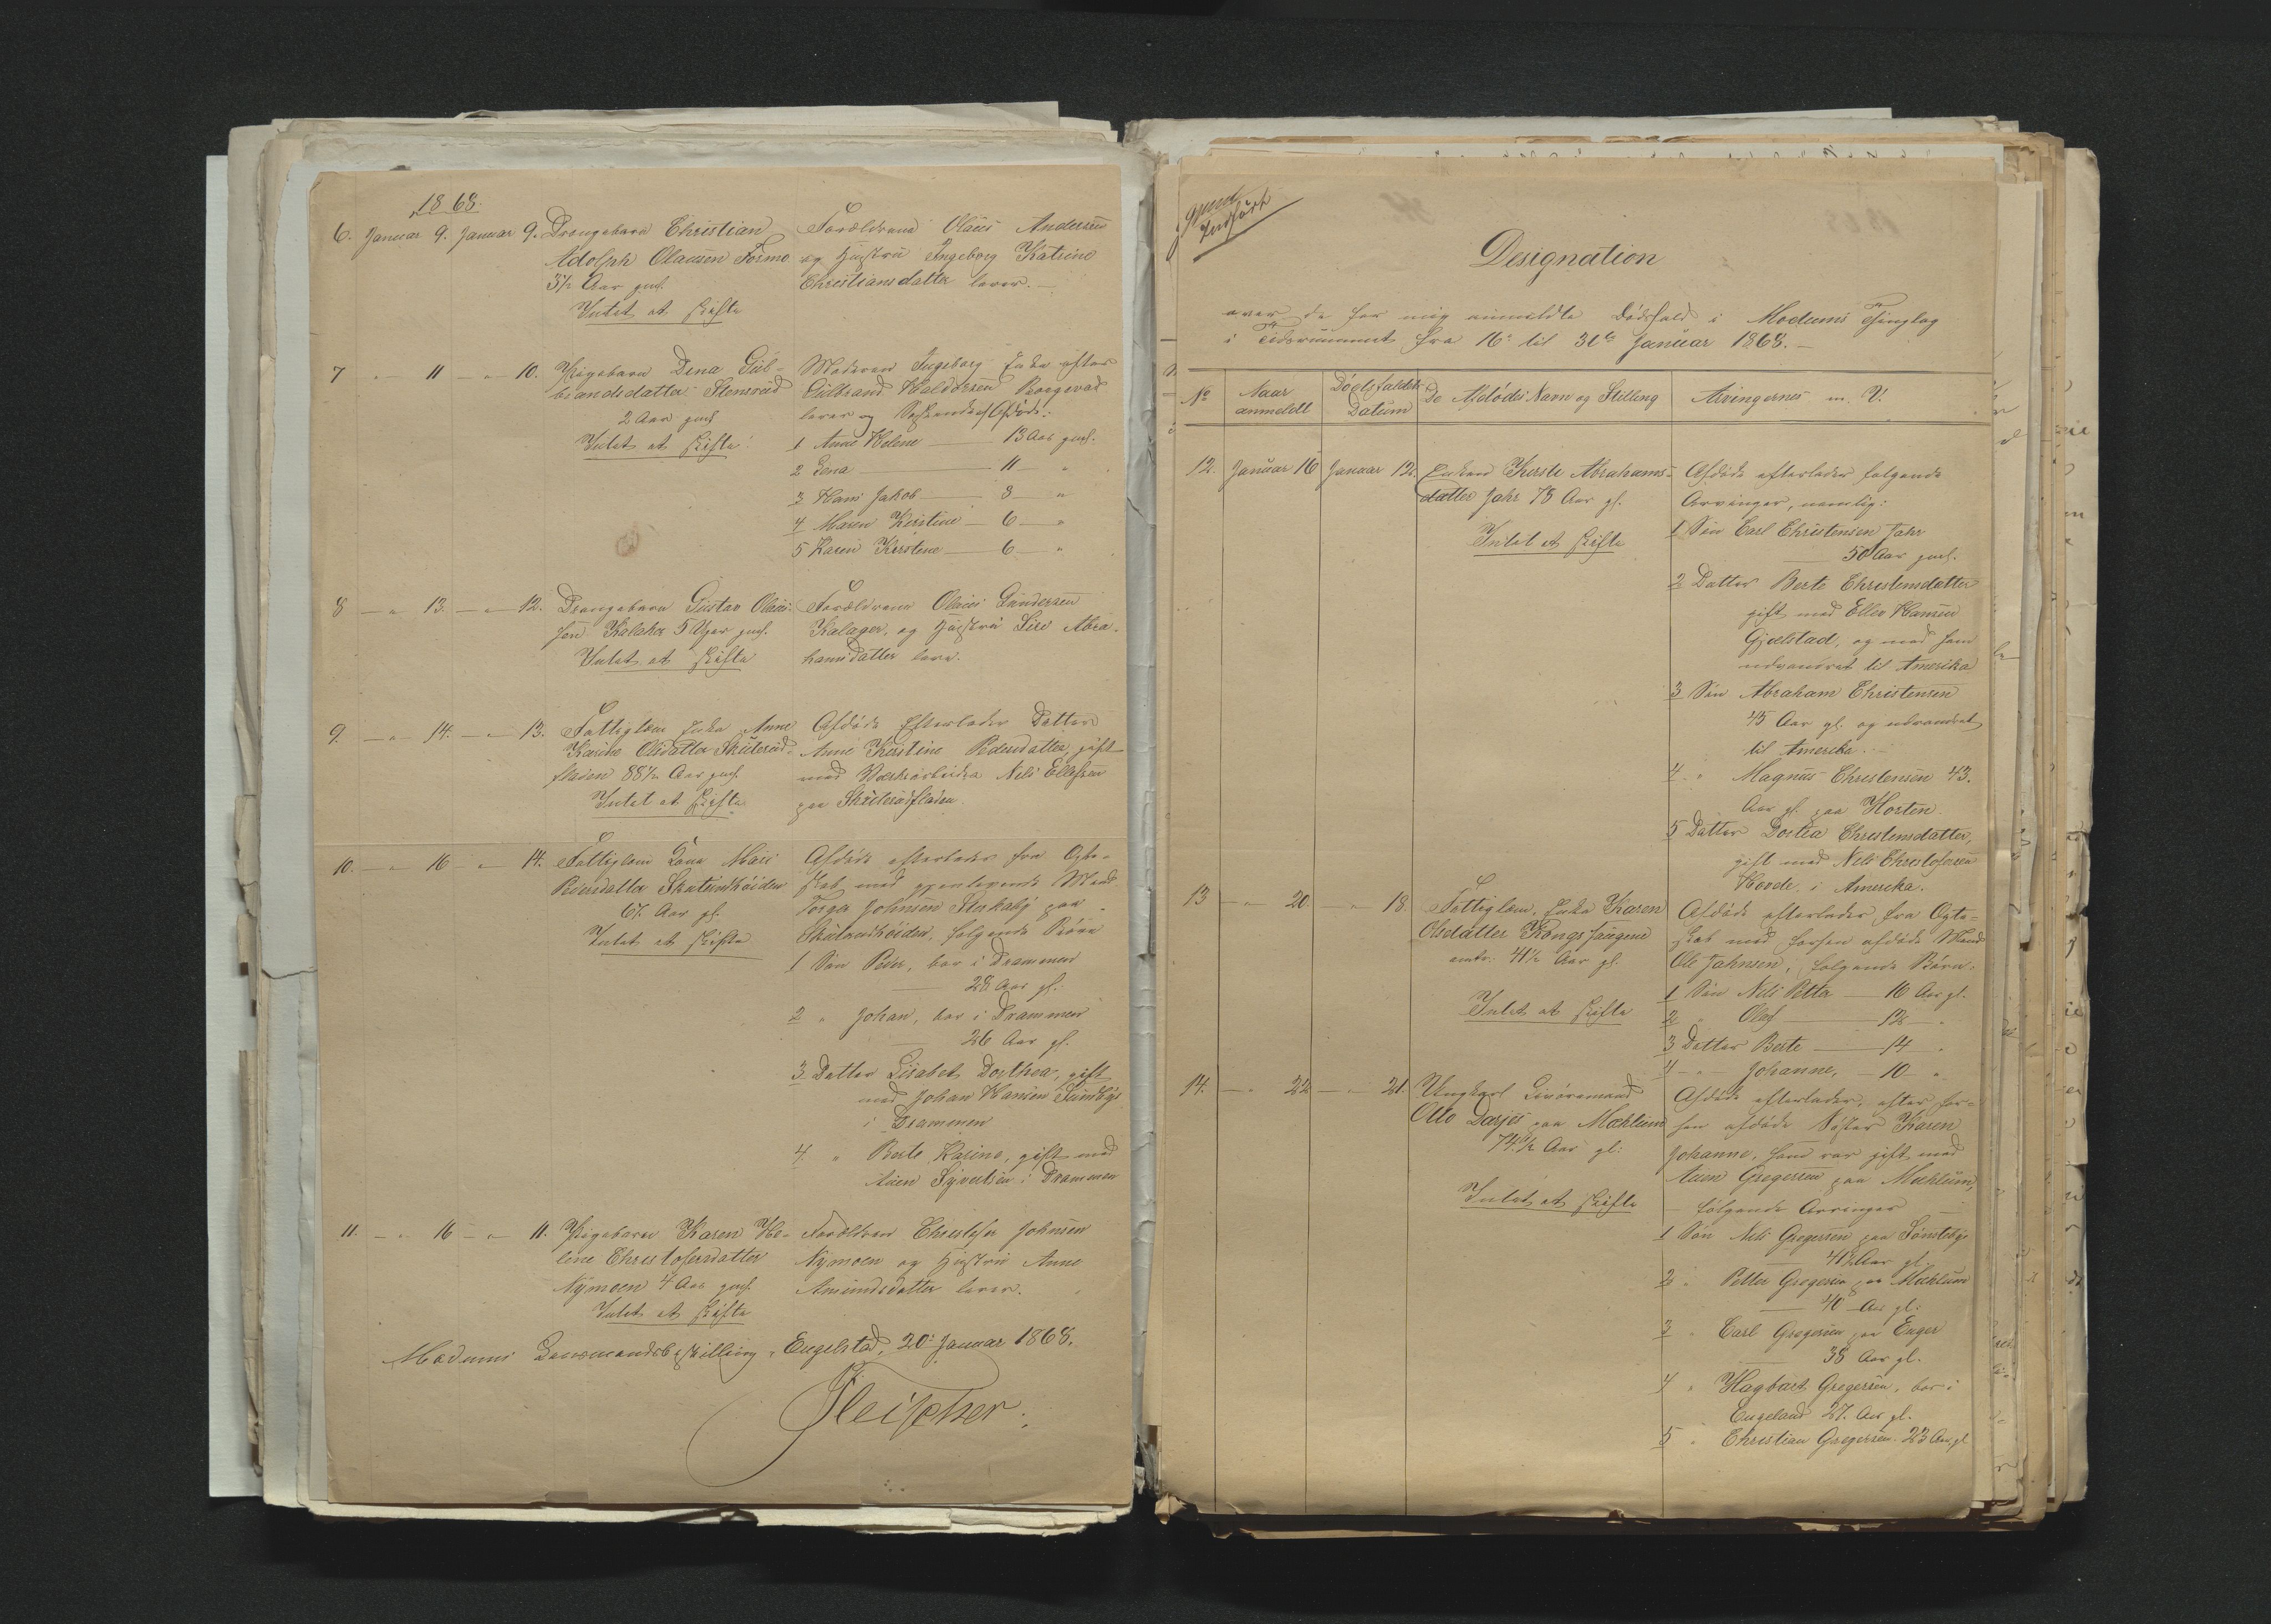 1868.
6. Januar 9. Januar 9. Drengebarn Christian Forældrene Olaus Andersen
Adolph Olausen Formo og Hustru Ingeborg Katrine
3½ Aar gml. Christiansdatter lever.
Intet at skifte
7 " 11 " 10. Pigebarn Dena Gul- Moderen Ingeborg Enke efter
brandsdatter Stensrud Gulbrand
2 Aar gml. lever og Afdøde:
Intet at skifte 1 Anne Helene 13 Aar gml.
2 Lena 11 "
3 Hans Jakob 3 "
4 Maren Kirstine 6 "
5 Karen Kirstene 6 "
8 " 13. " 12. Drengebarn Gustav Olaus- Forældrene Olaus Gundersen
sen 5 Uger gml. Kalager, og Hustru Siri Abra-
Intet at skifte hamsdatter lever.
9. " 14. " 13. Fattiglem Enke Anne Afdøde Efterlader Datter
Karine Olsdatter Skuterud- Anne Kirstine Pedersdatter, gift
fladen 88½ Aar gml. med Værksarbeider Nils Ellefsen
Intet at skifte paa Skuterudfladen.
10. " 16 " 14. Fattiglem Kone Mari Afdøde efterlader fra Egte-
Pedersdatter 67 Aar gl. skab med gjenlevende Mand
Intet at skifte Torger Johnsen paa
følgende Børn
1 Søn Peder, bor i Drammen
28 Aar gl.
2 " Johan, bor i Drammen
26 Aar gl.
3 Datter Lisabet Dorthea, gift
med Johan Hansen Sundby
i Drammen
4 " Berte Karine, gift med
Sivertsen i Drammen
11. " 16 " 11. Pigebarn Karen He- Forældrene Christofer Johnsen
lene Christofersdatter Nymoen og Hustru Anne
Nymoen 4 Aar gml. Amundsdatter lever.
Intet at skifte
Modums Lensmandsbestilling, Engelstad, 20. Januar 1868.
Fleischer.
Designation
over de for mig anmeldte Dødsfald i Modums Thinglag
i Tidsrummet fra 16. til 31te Januar 1868.
No Naar anmeldt Dødsfaldets Datum De Afdødes Navn og Stilling Arvingernes m. V.
12. Januar 16 Januar 12. Enken Kirste Abrahams- Afdøde efterlader følgende
datter Jahr 78 Aar gl. Arvinger, nemlig:
Intet at skifte 1 Søn Carl Christensen Jahr
50 Aar gml.
2 Datter Berte Christensdatter
gift med Ellev Hansen
Gjelstad, og med ham
udvandret til Amerika
3 Søn Abraham Christensen
45 Aar gl. og udvandret
til Amerika.
4 " Magnus Christensen 43.
Aar gl. paa Horten.
5 Datter Dortea Christensdatter,
gift med Nils Christofersen
Hovde i Amerika.
13 " 20. " 18. Fattiglem, Enke Karen Afdøde efterlader fra Egte-
Olsdatter skab med forhen afdøde Mand
41½ Aar gl. Ole Jahnsen, følgende Børn:
Intet at skifte 1 Søn Nils Petter 16 Aar gl.
2 " Olaf 12 "
3 Datter Berte 14 "
4 " Johanne, 10 "
14. " 22 " 21. Ungkarl Livøremand Afdøde efterlader, efter for-
Otto Darjes paa Mæhlum hen afdøde Søster Karen
74½ Aar gl. Johanne, som var gift med
Gregersen paa Mæhlum,
Intet at skifte følgende Arvinger
1 Søn Nils Gregersen paa Sønsteby
Aar gl.
2 " Petter Gregersen paa Mæhlum
40 Aar gl.
3 " Carl Gregersen paa Enger
38 Aar gl.
4 " Hagbart Gregersen, bor i
Engeland 27. Aar gl.
5 " Christian Gregersen. 23 Aar gl